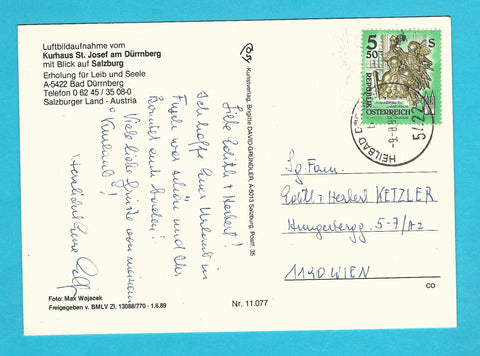 Luftbildaufnahme vom
Kurhaus St. Josef am Dürrnberg
mit Blick auf Salzburg
Erholung für Leib und Seele
A-5422 Bad Dürrnberg
Telefon 0 62 45 / 35 08-0
Salzburger Land - Austria
Liebe Edith + Herbert!
Ich hoffe Euer Urlaub in
war schön und Ihr
konntet euch erholen!
Viele liebe Grüße von meinem
"Kururlaub"!
Herzlichst Eure
Foto: Max Wojacek
Freigegeben v. BMLV Zl. 13088/770 - 1.6.89
Cosy - Kunstverlag, Brigitte DAVID-GRÜNDLER, A-5013 Salzburg, Postf. 35
Nr. 11.077
5 50 S
REPUBLIK
ÖSTERREICH
HEILBAD
Sg. Fam.
Edith + Herbert KETZLER
Hungerbergg. 5-7/A2
1190 WIEN
CO